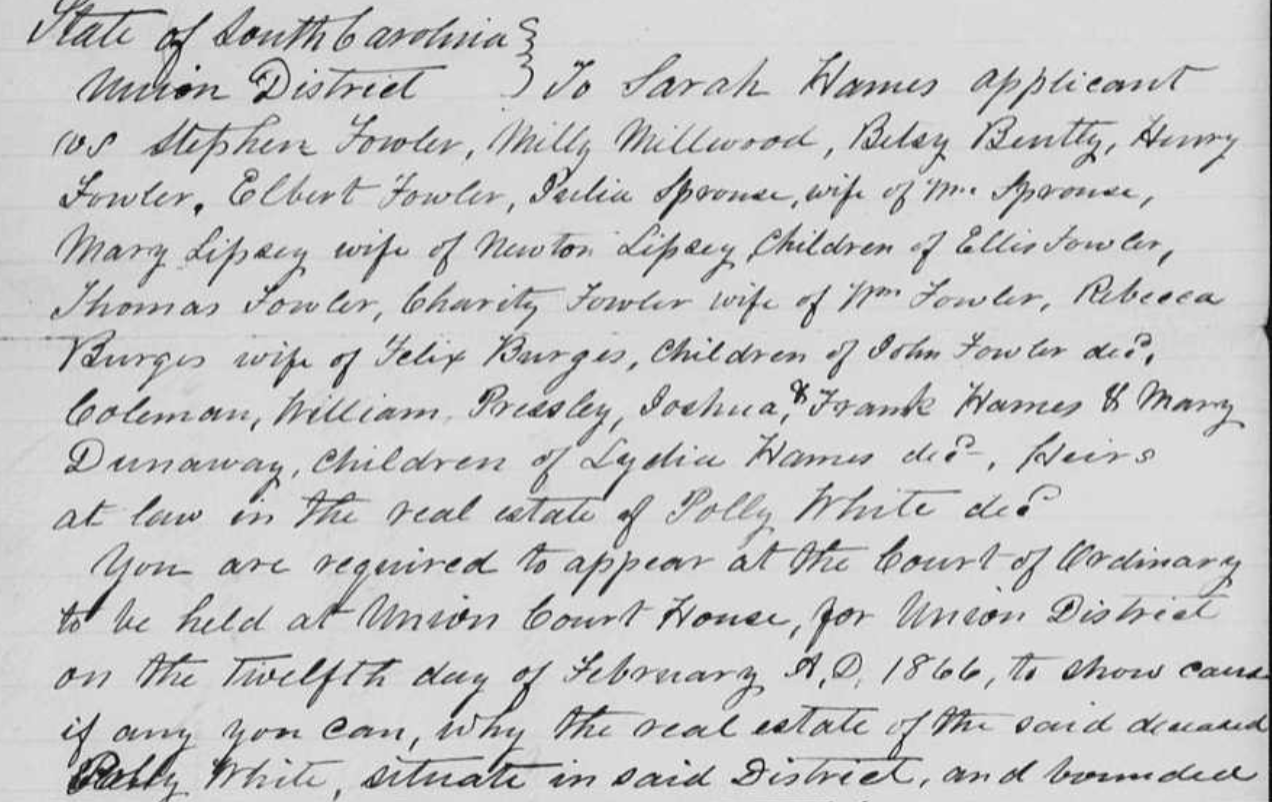 State of South Carolina
Union District } To Sarah Hames applicant
vs Stephen Fowler, Milly Millwood, Betsy Bentty, Henry
Fowler, Elbert Fowler, Julia Sprouse, wife of Wm. Sprouse,
Mary Lipsey wife of Newton Lipsey, Children of Ellis Fowler,
Thomas Fowler, Charity Fowler wife of Wm Fowler, Rebecca
Burges wife of Felix Burges, Children of John Fowler decd.
Coleman, William, Pressley, Joshua, & Frank Hames & Mary
Dunaway, Children of Lydia Hames decd, Heirs
at law in the real estate of Polly White decd
You are required to appear at the Court of Ordinary
to be held at Union Court House, for Union District
on the Twelfth day of February A.D. 1866, to show cause
if any you can, why the real estate of the said deceased
Polly White, situate in said District, and bounded